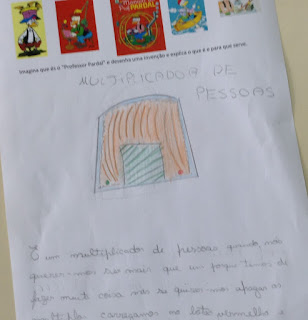 PARDAL
Imagina que és o "Professor Pardal" e desenha uma invenção e explica o que é e para que serve.
MULTIPLICADOR DE
PESSOAS
É um multiplicador de pessoas, quando nós
queres-mos ser mais que um porque temos de
fazer muita coisa nós se quiser-mos apagar as
carregamos no botão vermelho e